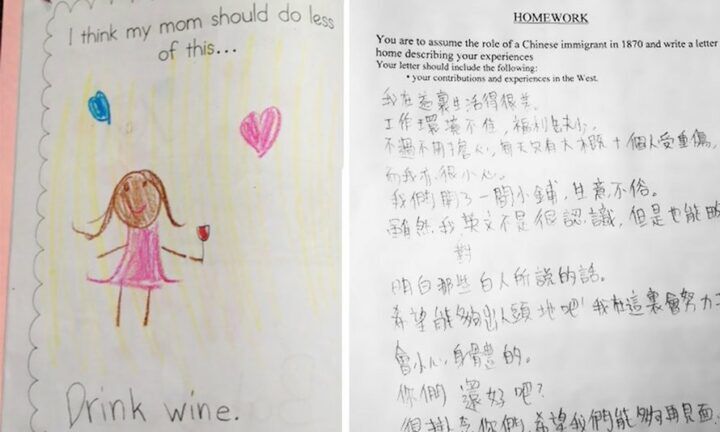 I think my mom should do less
of this...
Drink wine.
HOMEWORK
You are to assume the role of a Chinese immigrant in 1870 and write a letter
home describing your experiences
Your letter should include the following:
• your contributions and experiences in the West.
我在這裏生活得很苦。
工作環境不佳,福利缺少。
不過不用擔心,每天只有大概十個人受重傷,
而我有很小心。
我們開了一間小鋪,生意不俗。
雖然我英文不是很認識,但是也能夠
對
明白那些白人所說的話。
希望能夠出人頭地吧!我在這裏會努力工
會小心身體的。
你們還好吧?
很掛念你們,希望我們能夠再見面